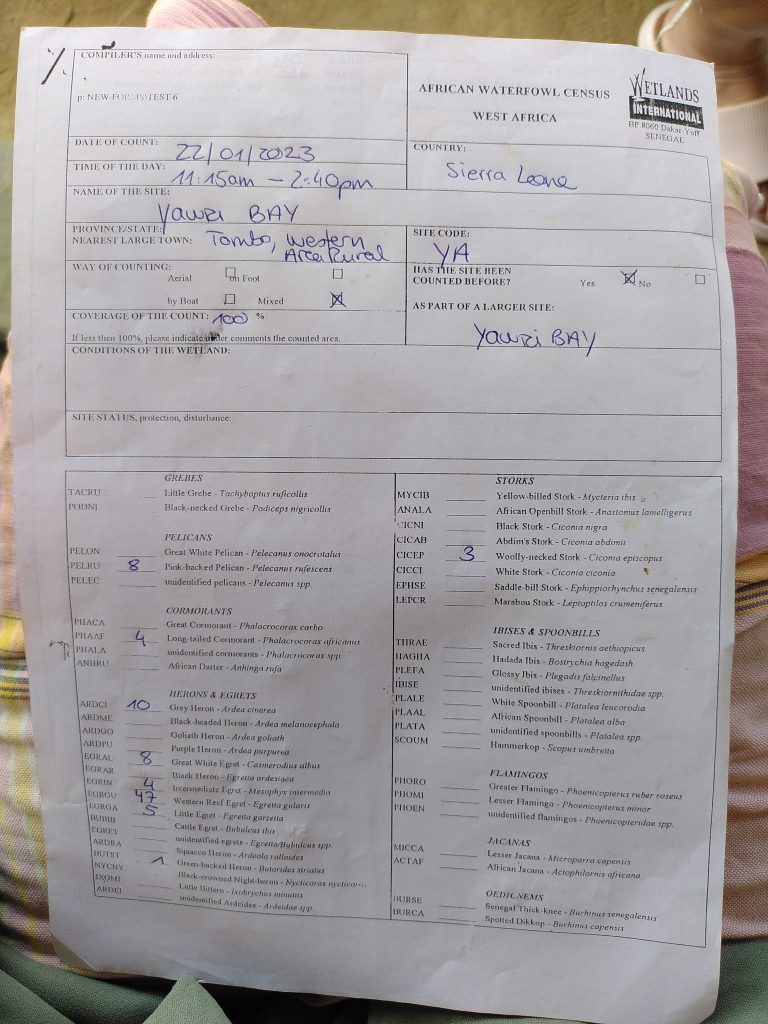 COMPILER'S name and address:
p: NEW FORMS\TEST 6
AFRICAN WATERFOWL CENSUS
WEST AFRICA
WETLANDS
INTERNATIONAL
BP 8060 Dakar-Yoff
SENEGAL
DATE OF COUNT: 22/01/2023
TIME OF THE DAY: 11:15am - 2:40pm
COUNTRY:
Sierra Leone
NAME OF THE SITE:
Yawri BAY
PROVINCE/STATE:
NEAREST LARGE TOWN: Tombo, Western Area Rural
SITE CODE:
YA
WAY OF COUNTING:
Aerial on Foot
by Boat Mixed
HAS THE SITE BEEN
COUNTED BEFORE? Yes No
COVERAGE OF THE COUNT: 100 %
If less then 100%, please indicate under comments the counted area.
AS PART OF A LARGER SITE:
Yawri BAY
CONDITIONS OF THE WETLAND:
SITE STATUS, protection, disturbance:
GREBES
TACRU Little Grebe - Tachybaptus ruficollis
PODNI Black-necked Grebe - Podiceps nigricollis
PELICANS
PELON Great White Pelican - Pelecanus onocrotalus
PELRU 8 Pink-backed Pelican - Pelecanus rufescens
PELEC unidentified pelicans - Pelecanus spp.
CORMORANTS
PHACA Great Cormorant - Phalacrocorax carbo
PHAAF 4 Long-tailed Cormorant - Phalacrocorax africanus
PHALA unidentified cormorants - Phalacrocorax spp.
ANHRU African Darter - Anhinga rufa
HERONS & EGRETS
ARDCI 10 Grey Heron - Ardea cinerea
ARDME Black-headed Heron - Ardea melanocephala
ARDGO Goliath Heron - Ardea goliath
ARDPU Purple Heron - Ardea purpurea
EGLAL 8 Great White Egret - Casmerodius albus
EGRAR Black Heron - Egretta ardesiaca
EGRIN 4 Intermediate Egret - Mesophyx intermedia
EGRGU 47 Western Reef Egret - Egretta gularis
EGRGA 5 Little Egret - Egretta garzetta
BUBIB Cattle Egret - Bubulcus ibis
EGRET unidentified egrets - Egretta/Bubulcus spp.
ARDRA Squacco Heron - Ardeola ralloides
BUTST 1 Green-backed Heron - Butorides striatus
NYCNY Black-crowned Night-heron - Nycticorax nycticorax
IXOMI Little Bittern - Ixobrychus minutus
ARDEI unidentified Ardeidae - Ardeidae spp.
STORKS
MYCIB Yellow-billed Stork - Mycteria ibis
ANALA African Openbill Stork - Anastomus lamelligerus
CICNI Black Stork - Ciconia nigra
CICAB Abdim's Stork - Ciconia abdimii
CICEP 3 Woolly-necked Stork - Ciconia episcopus
CICCI White Stork - Ciconia ciconia
EPHSE Saddle-bill Stork - Ephippiorhynchus senegalensis
LEPCR Marabou Stork - Leptoptilos crumeniferus
IBISES & SPOONBILLS
THRAE Sacred Ibis - Threskiornis aethiopicus
HAGHA Hadada Ibis - Bostrychia hagedash
PLEFA Glossy Ibis - Plegadis falcinellus
IBISE unidentified ibises - Threskiornithidae spp.
PLALE White Spoonbill - Platalea leucorodia
PLAAL African Spoonbill - Platalea alba
PLATA unidentified spoonbills - Platalea spp.
SCOUM Hammerkop - Scopus umbretta
FLAMINGOS
PHORO Greater Flamingo - Phoenicopterus ruber roseus
PHOMI Lesser Flamingo - Phoenicopterus minor
PHOEN unidentified flamingos - Phoenicopteridae spp.
JACANAS
MICCA Lesser Jacana - Microparra capensis
ACTAF African Jacana - Actophilornis africana
OEDICNEMS
BURSE Senegal Thick-knee - Burhinus senegalensis
BURCA Spotted Dikkop - Burhinus capensis